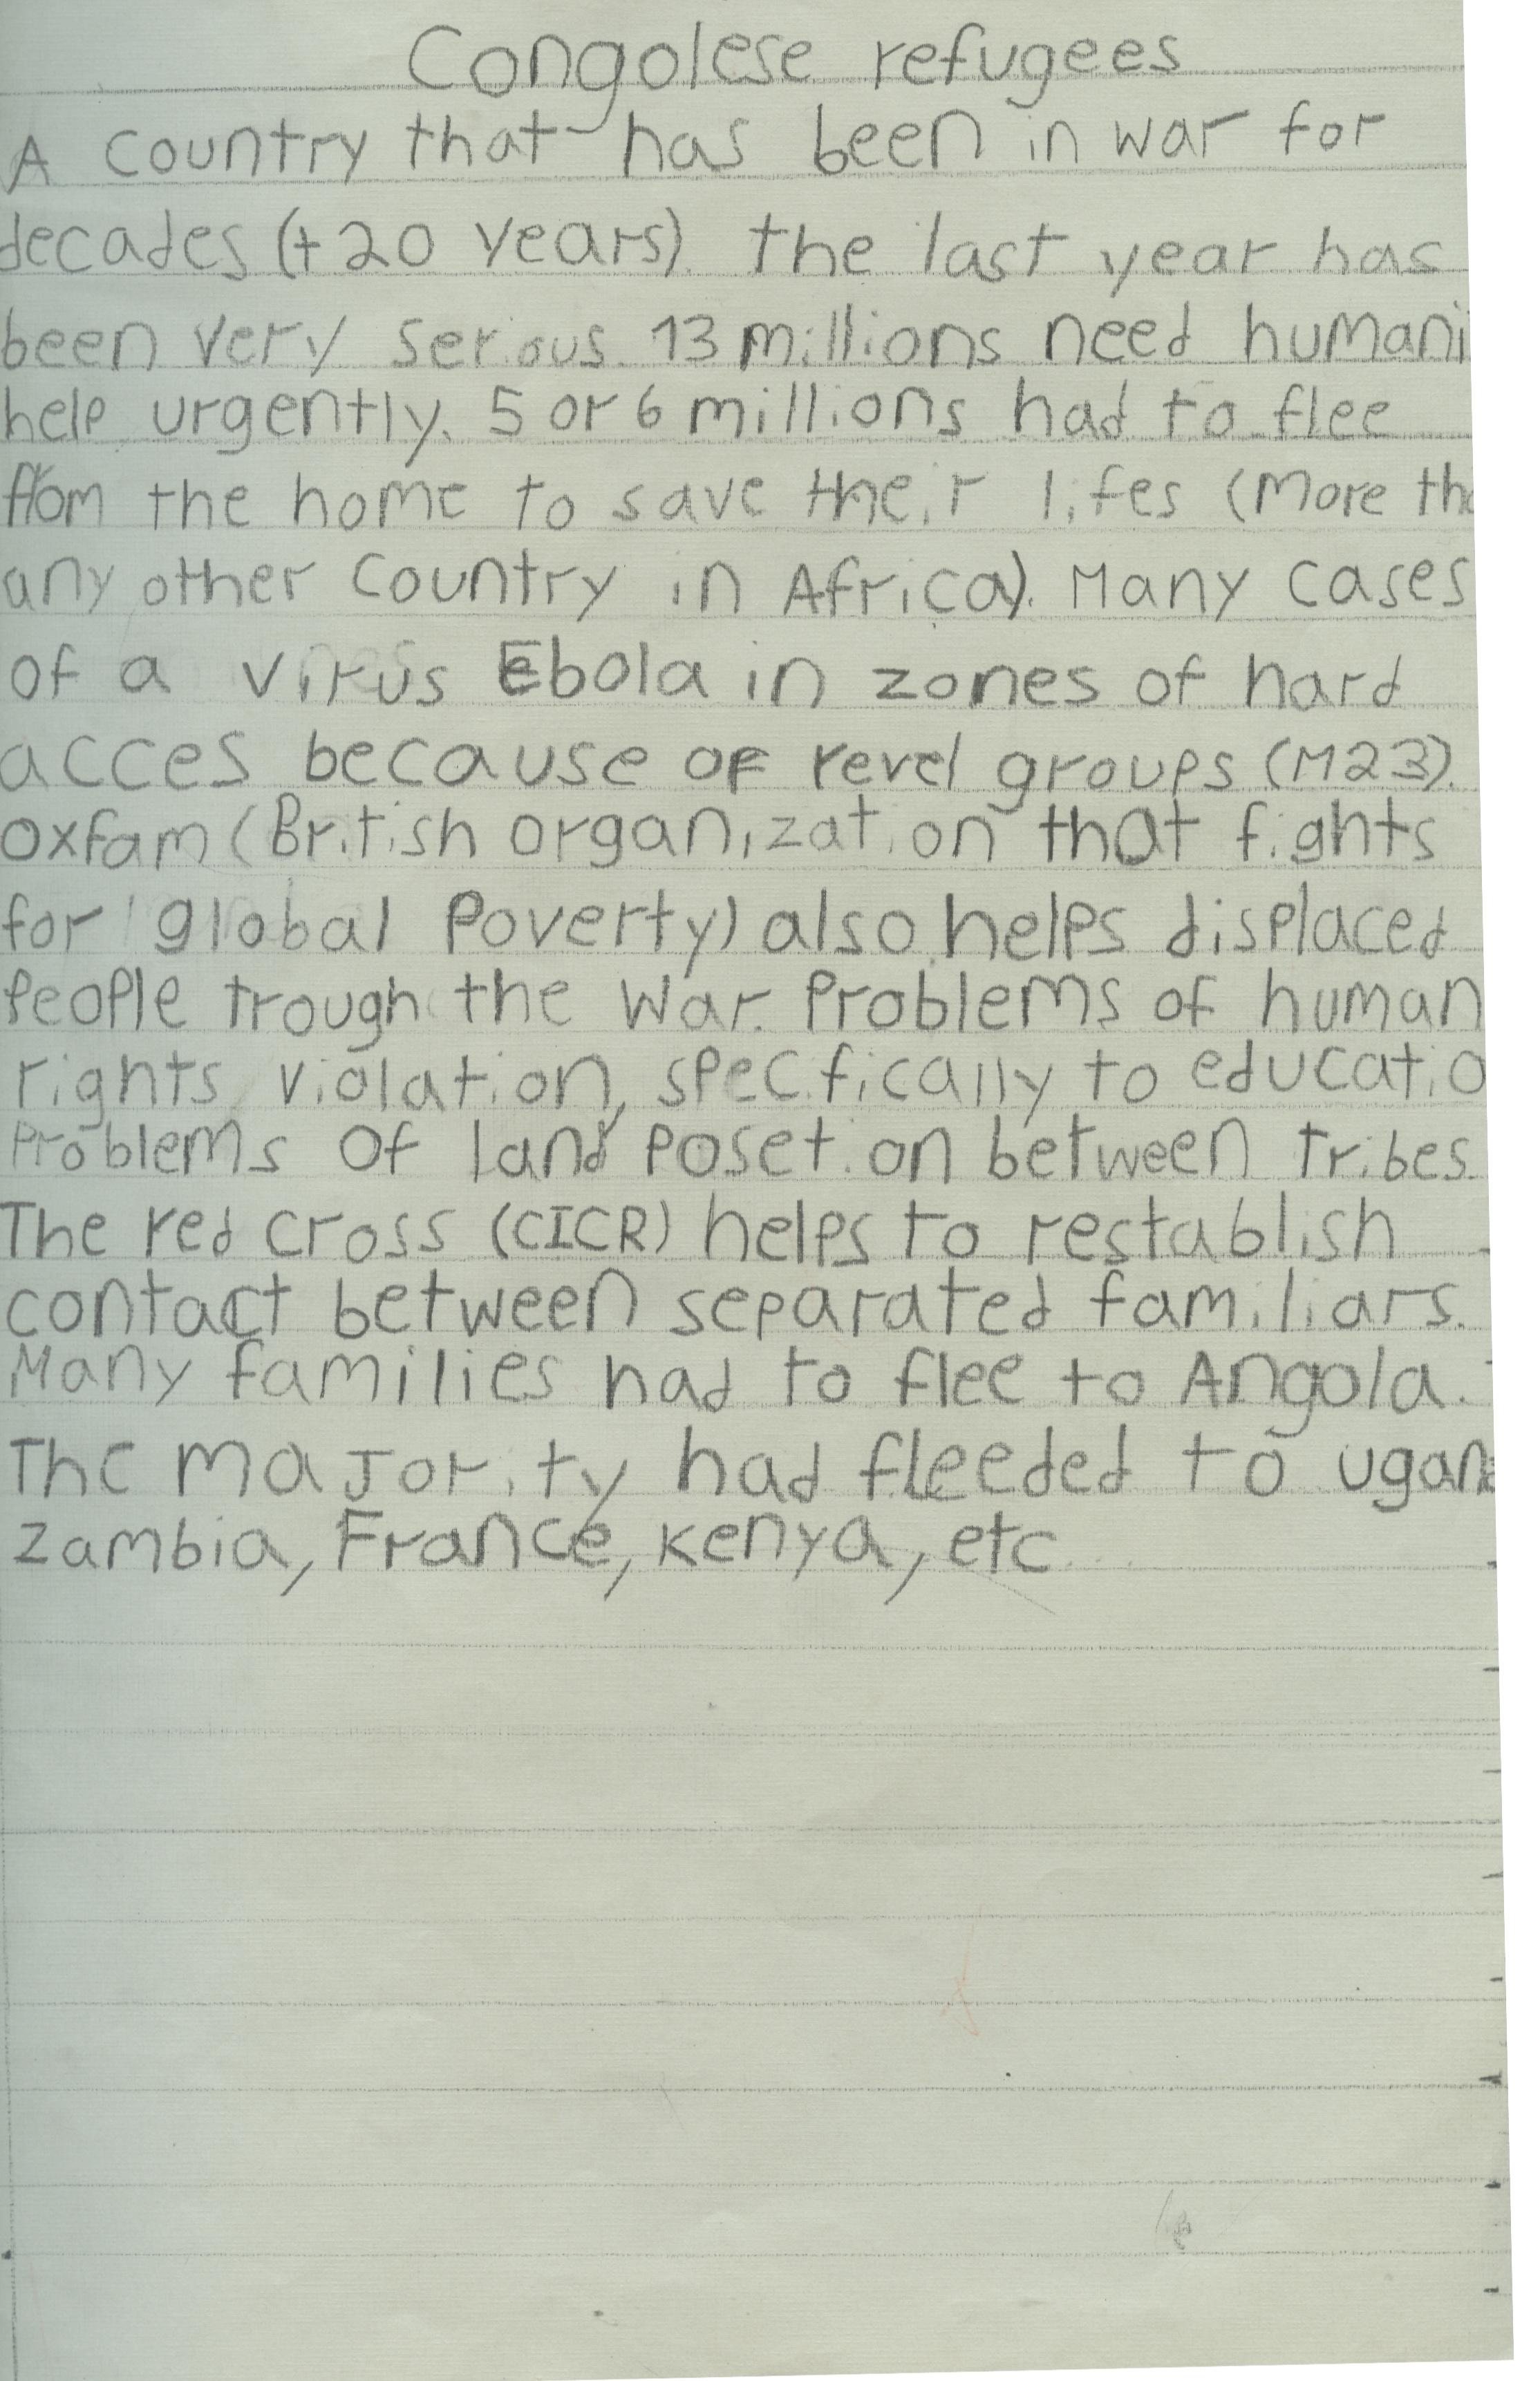 Congolese refugees
A country that has been in war for
decades (+20 years). the last year has
been very serious. 13 millions need humani
help urgently. 5 or 6 millions had to flee
from the home to save their lifes (More tha
any other country in Africa). Many cases
of a virus Ebola in zones of hard
acces because of revel groups (M23).
oxfam (British organization that fights
for global poverty) also helps displaced
people trough the war. Problems of human
rights violation, specifically to educatio
Problems of land posetion between tribes.
The red cross (CICR) helps to restablish
contact between separated familiars.
Many families had to flee to Angola.
The majority had fleeded to ugand
zambia, France, kenya, etc